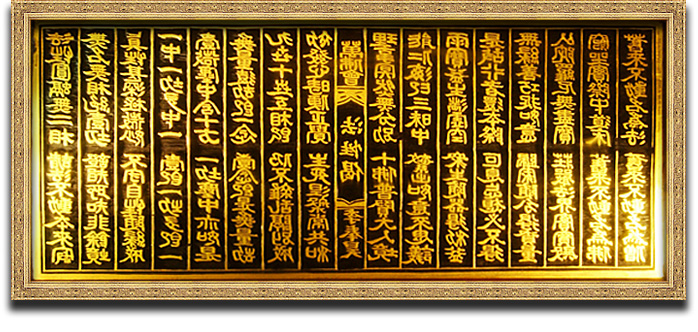 法性圓融無二相 諸法不動本來寂
無名無相絶一切 證智所知非餘境
眞性甚深極微妙 不守自性隨緣成
一中一切多中一 一卽一切多卽一
一微塵中含十方 一切塵中亦如是
無量遠劫卽一念 一念卽是無量劫
九世十世互相卽 仍不雜亂隔別成
初發心時便正覺 生死涅槃常共和
法性偈
理事冥然無分別 十佛普賢大人境
能仁海印三昧中 繁出如意不思議
雨寶益生滿虛空 衆生隨器得利益
是故行者還本際 叵息妄想必不得
無緣善巧捉如意 歸家隨分得資糧
以陀羅尼無盡寶 莊嚴法界實寶殿
窮坐實際中道床 舊來不動名爲佛
舊來不動名爲法 舊來不動名爲僧